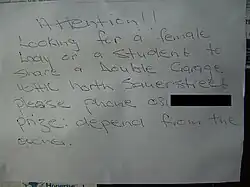 Attention!!
Looking for a female
Lady or a Student to
share a Double Garage
with north Sauer street
please phone
prize: depend from the
owner.